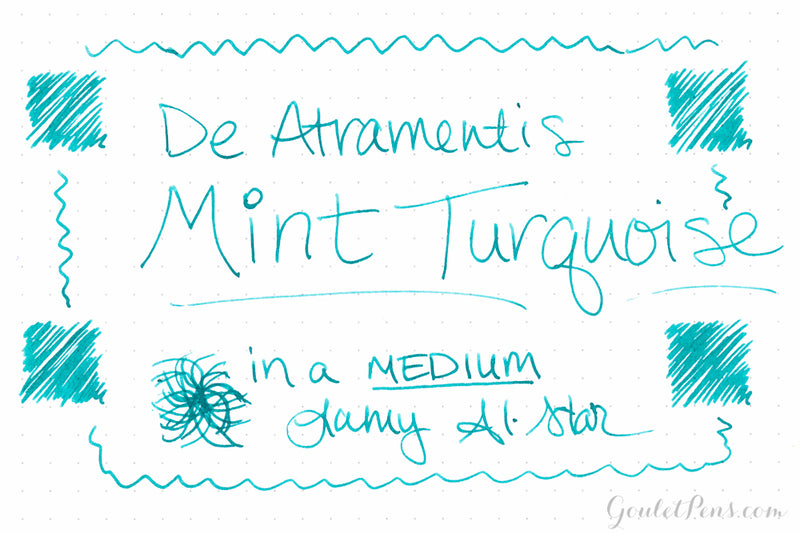 De Atramentis
Mint Turquoise
in a MEDIUM
Lamy Al-Star
GouletPens.com